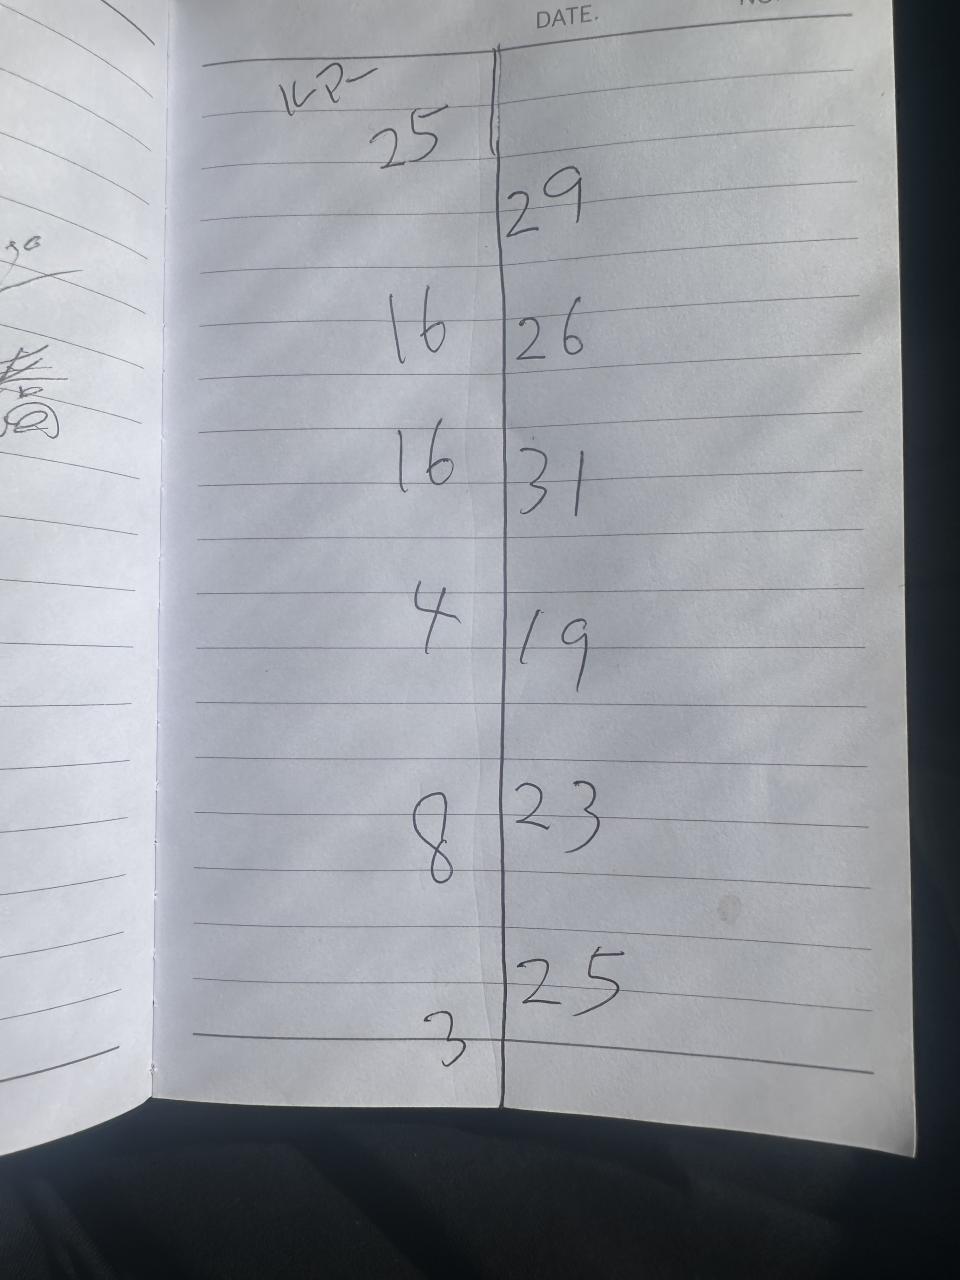 DATE.
25
29
16 26
16 31
4 19
8 23
25
3